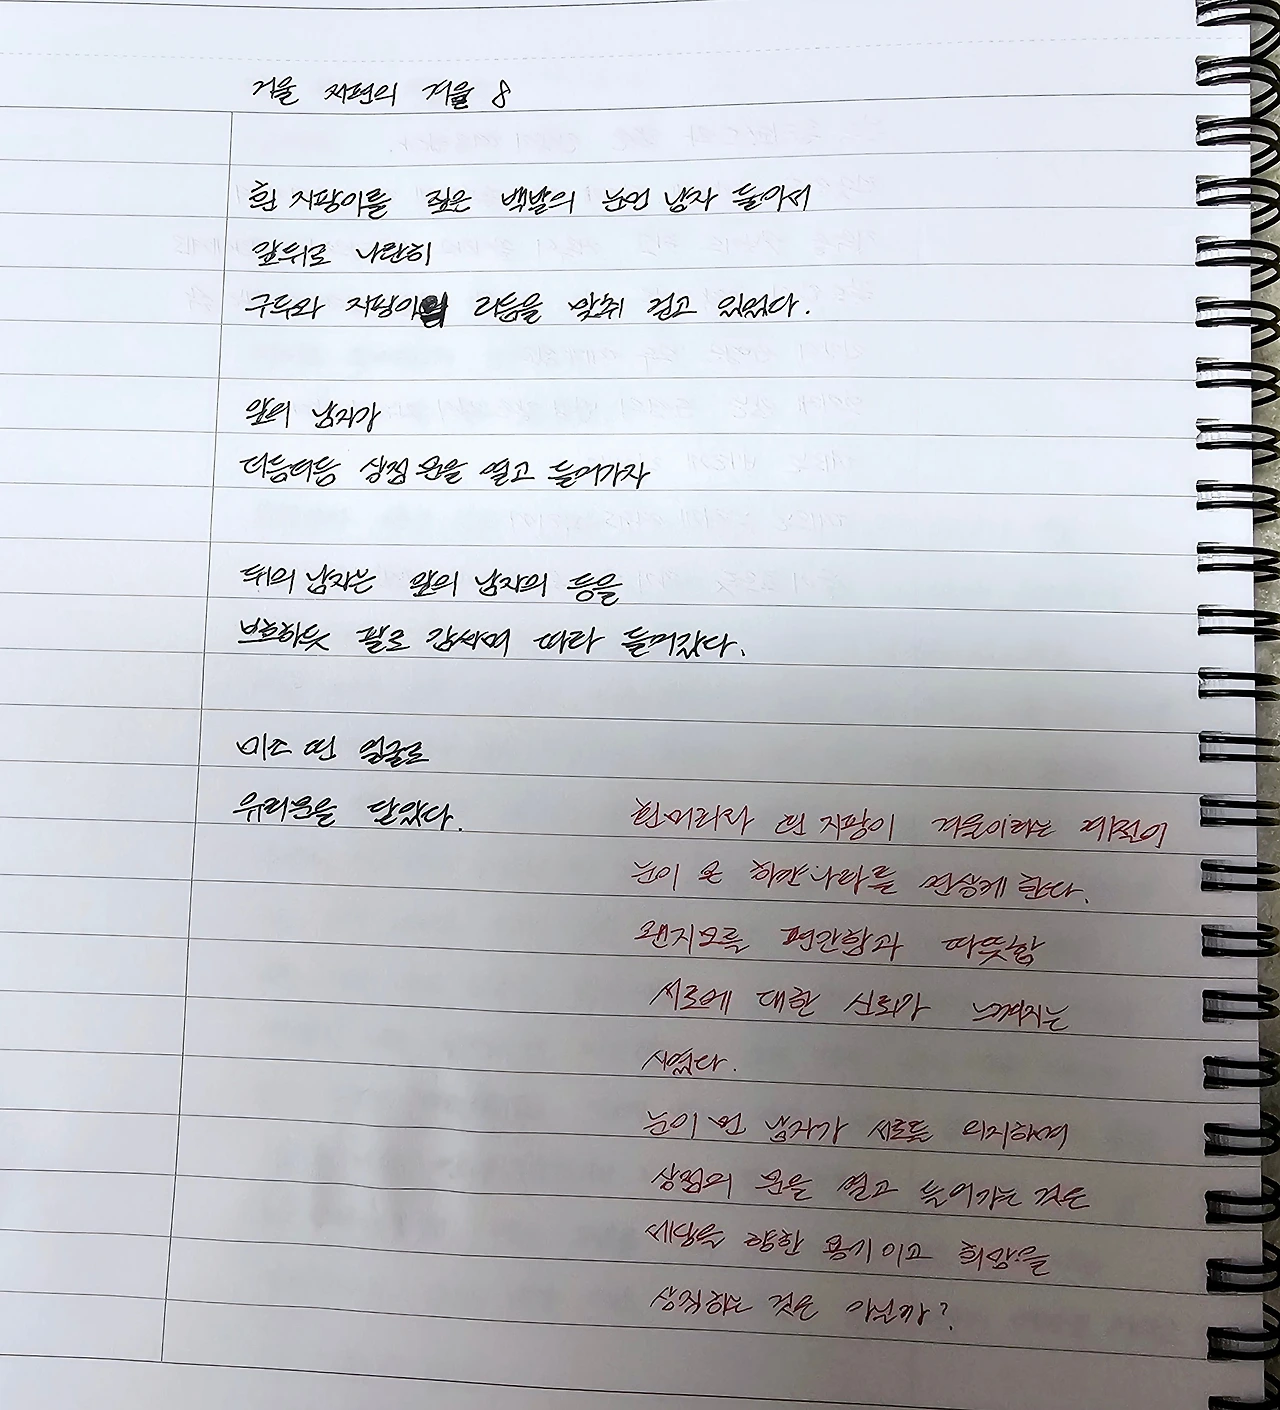 거울 저편의 겨울 8
흰 지팡이를 짚은 백발의 눈먼 남자 둘이서
앞뒤로 나란히
구두와 지팡이 리듬을 맞춰 걷고 있었다.
앞의 남자가
더듬더듬 상점 문을 열고 들어가자
뒤의 남자는 앞의 남자의 등을
보호하듯 팔로 감싸며 따라 들어갔다.
미소 띤 얼굴로
유리문을 닫았다.
흰머리와 흰 지팡이 겨울이라는 계절이
눈이 온 하얀나라를 연상케 한다.
왠지모를 편안함과 따뜻함
서로에 대한 신뢰가 느껴지는
시였다.
눈이 먼 남자가 서로를 의지하며
상점의 문을 열고 들어가는 것은
세상을 향한 용기이고 희망을
상징하는 것은 아닌가?